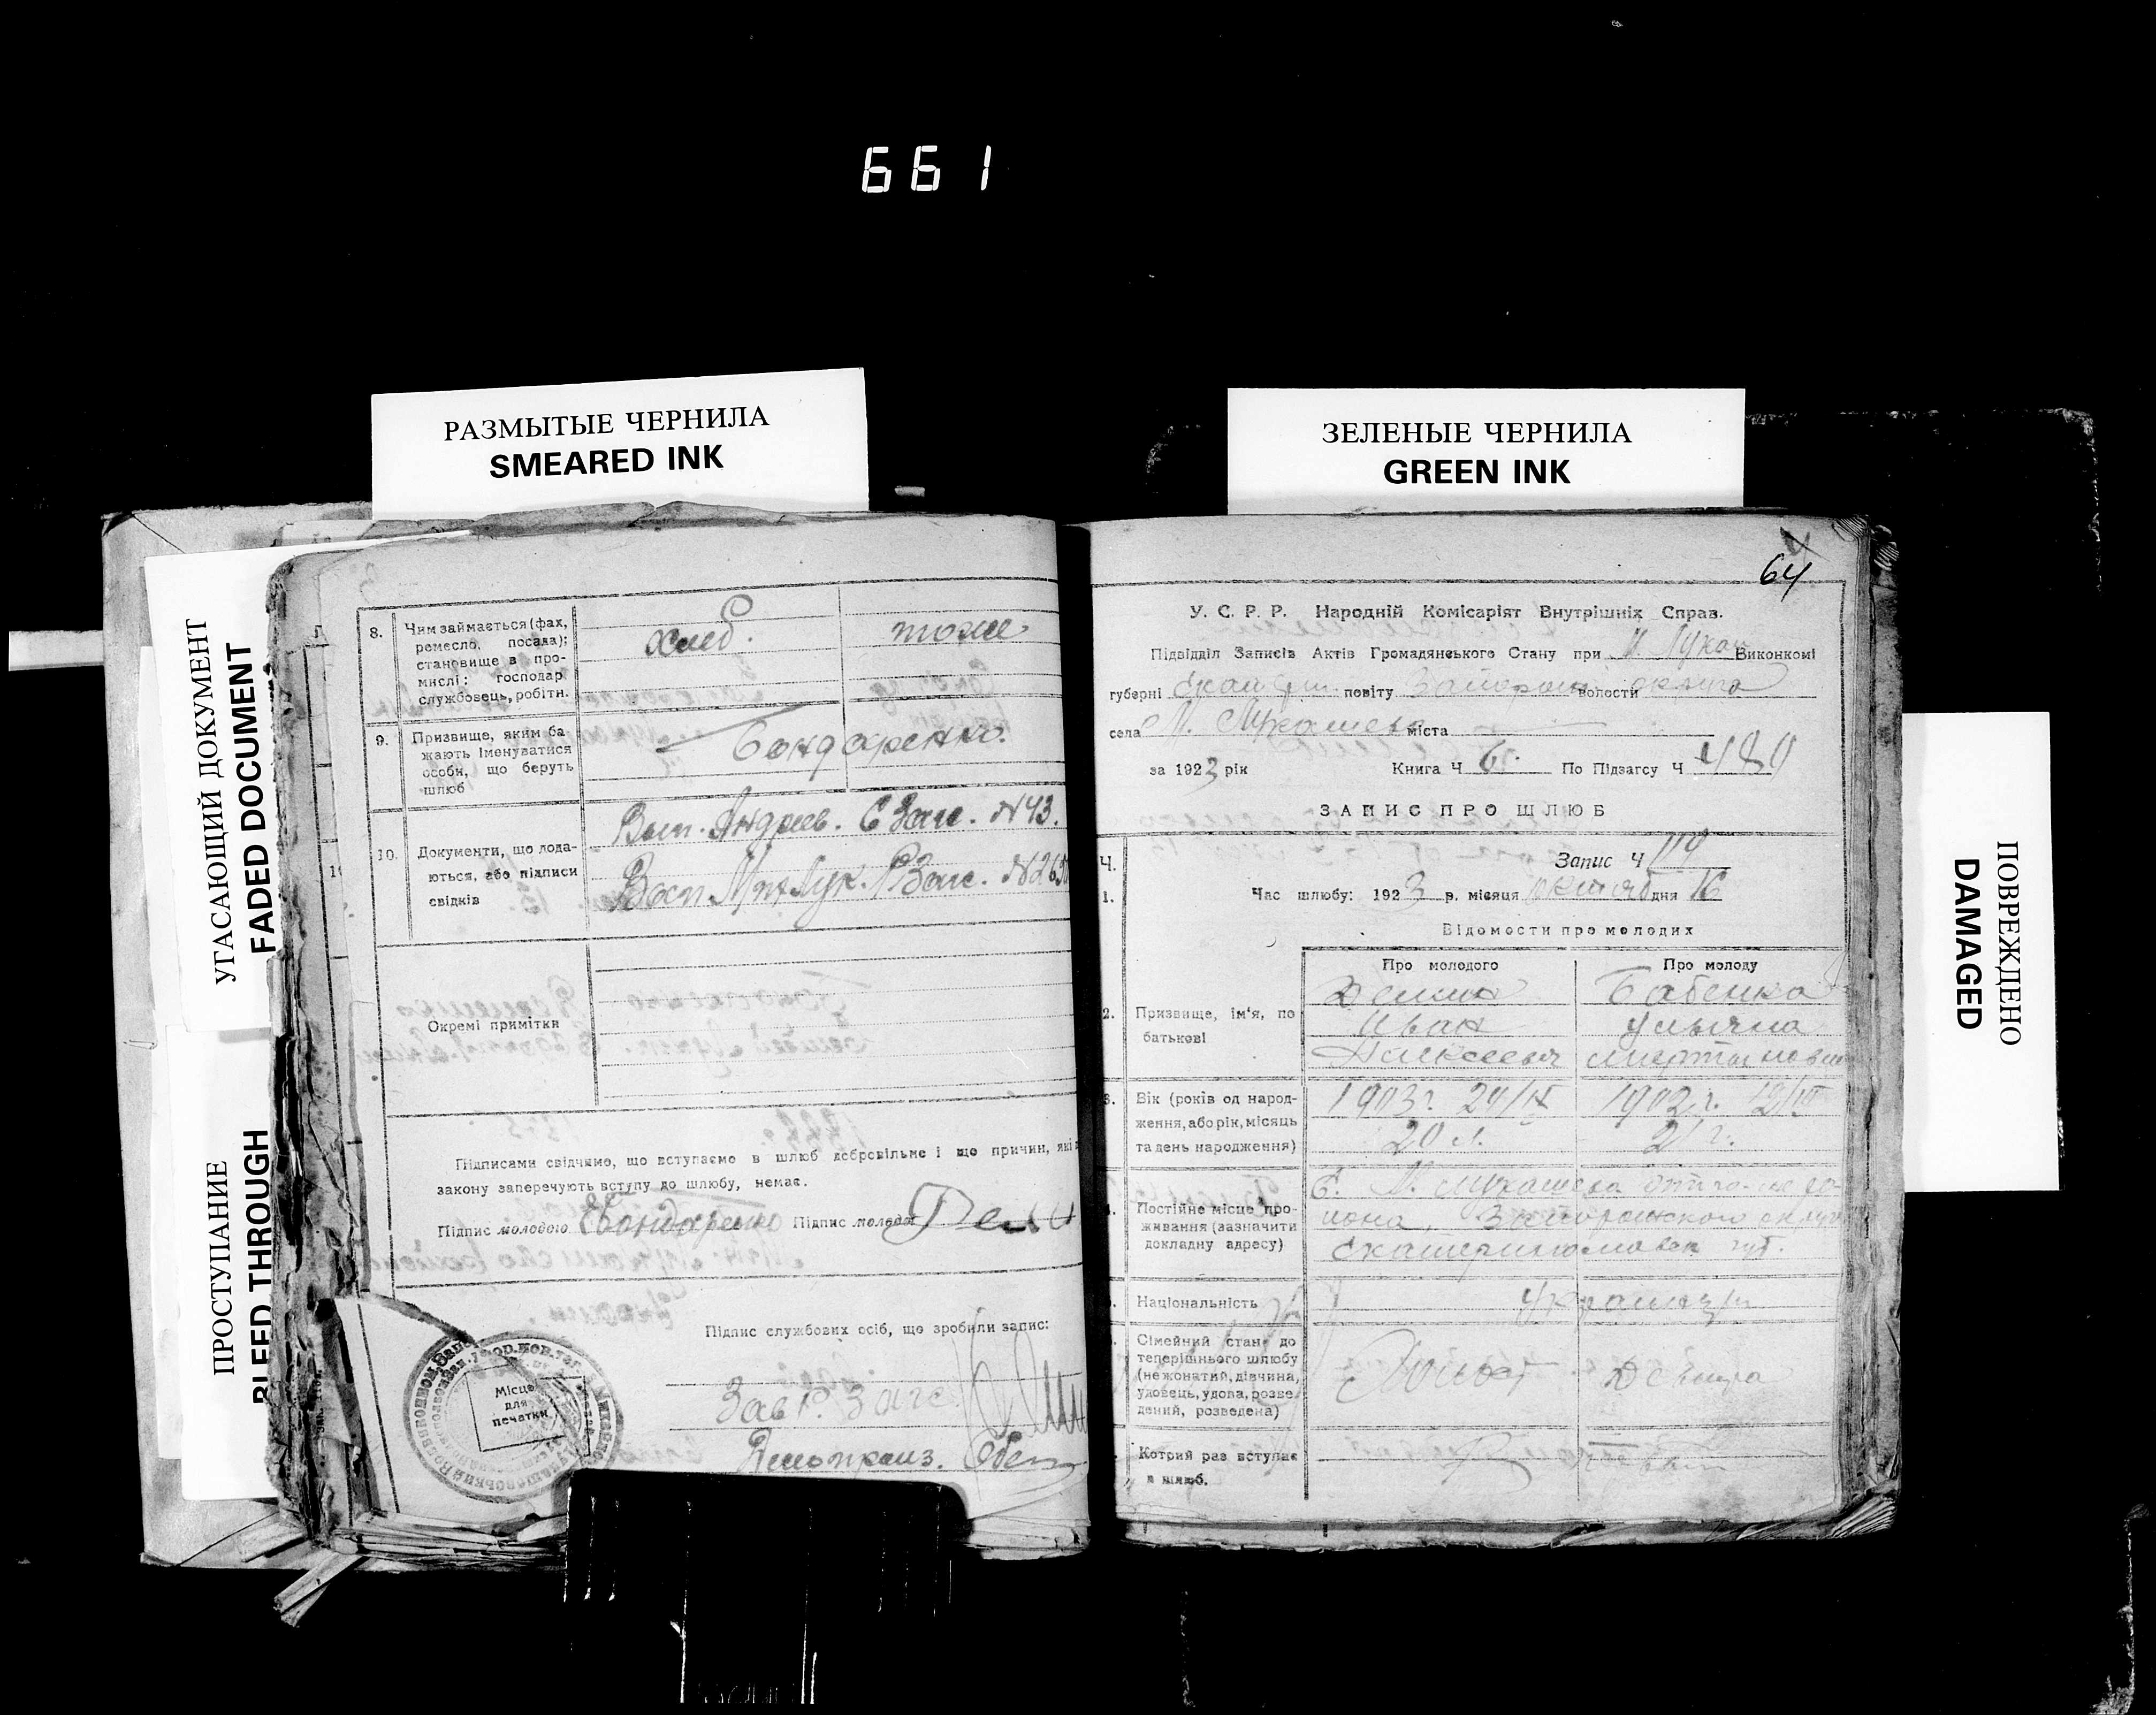 661
РАЗМЫТЫЕ ЧЕРНИЛА
SMEARED INK
ЗЕЛЕНЫЕ ЧЕРНИЛА
GREEN INK
УГАСАЮЩИЙ ДОКУМЕНТ
FADED DOCUMENT
ПРОСТУПАНИЕ
BLEED THROUGH
8. Чим займається (фах, ремесло, посада);
становище в про-
мислі: господар
службовець, робітн.
хлеб. тоже
9. Призвище, яким ба-
жають іменуватися
особи, що беруть
шлюб
Бондаренко.
10. Документи, що пода-
ються, або підписи
свідків
Вып. Андреев. С Загс. №43.
Вып. М Лук. Р Загс.
Окремі примітки
Підписами свідчимо, що вступаємо в шлюб добровільне і що причин, які
закону заперечують вступу до шлюбу, немає.
Підпис молодого Бондаренко Підпис молодої
Підпис службових осіб, що зробили запис:
Зав Р. Загс.
Делопроиз.
Місце
для
печатки
64
У. С. Р. Р. Народній Комісаріят Внутрішніх Справ.
Підвідділ Записів Актів Громадянського Стану при М. Лукаш Виконкомі
губерні Екатерин повіту Запорож волости округа
села М. Лукашево міста
за 1923 рік Книга Ч 6. По Підзагсу Ч
ЗАПИС ПРО ШЛЮБ
Ч. Запис Ч
1. Час шлюбу: 1923 р. місяця октяб дня 16
Відомости про молодих
Про молодого Про молоду
2. Призвище, ім'я, по
батькові
Бабенко
Иван Ульяна
Алексеевич Мартыновна
3. Вік (років од народ-
ження, або рік, місяць
та день народження)
1903 г. 1902 г.
20 л. 21 г.
4. Постійне місце про-
живання (зазначити
докладну адресу)
С. М. Лукашева ра-
иона, Запорожского округа
Екатеринославск губ.
Національність
Украинцы
Сімейний стан до
теперішнього шлюбу
(нежонатий, дівчина,
удовець, удова, розве-
дений, розведена)
Холост Девица
Котрий раз вступає
в шлюб.
ПОВРЕЖДЕНО
DAMAGED